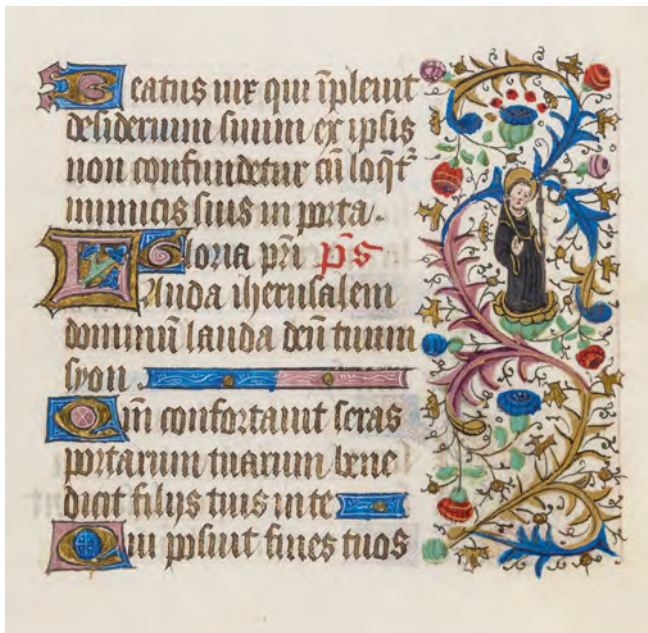 Beatus vir qui īplevit
desiderium suum ex ipsis
non confundetur cū loqr̄
inimicis suis in porta.
Gloria pr̄i p̄s
Lauda iherusalem
dominū lauda deū tuum
syon.
Qm̄ confortavit seras
portarum tuarum bene
dixit filijs tuis in te
Qui posuit fines tuos